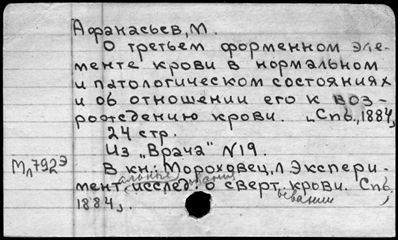 Афанасьев, М.
О третьем форменном эле-
менте крови в нормальном
и патологическом состояниях
и об отношении его к воз-
рождению крови. „Спб., 1884,
24 стр.
Из „Врача" N19.
Мл792э В кн.: Мороховец, Л. Экспери-
ментальные исслед. о сверт. крови. Спб,
1884,.